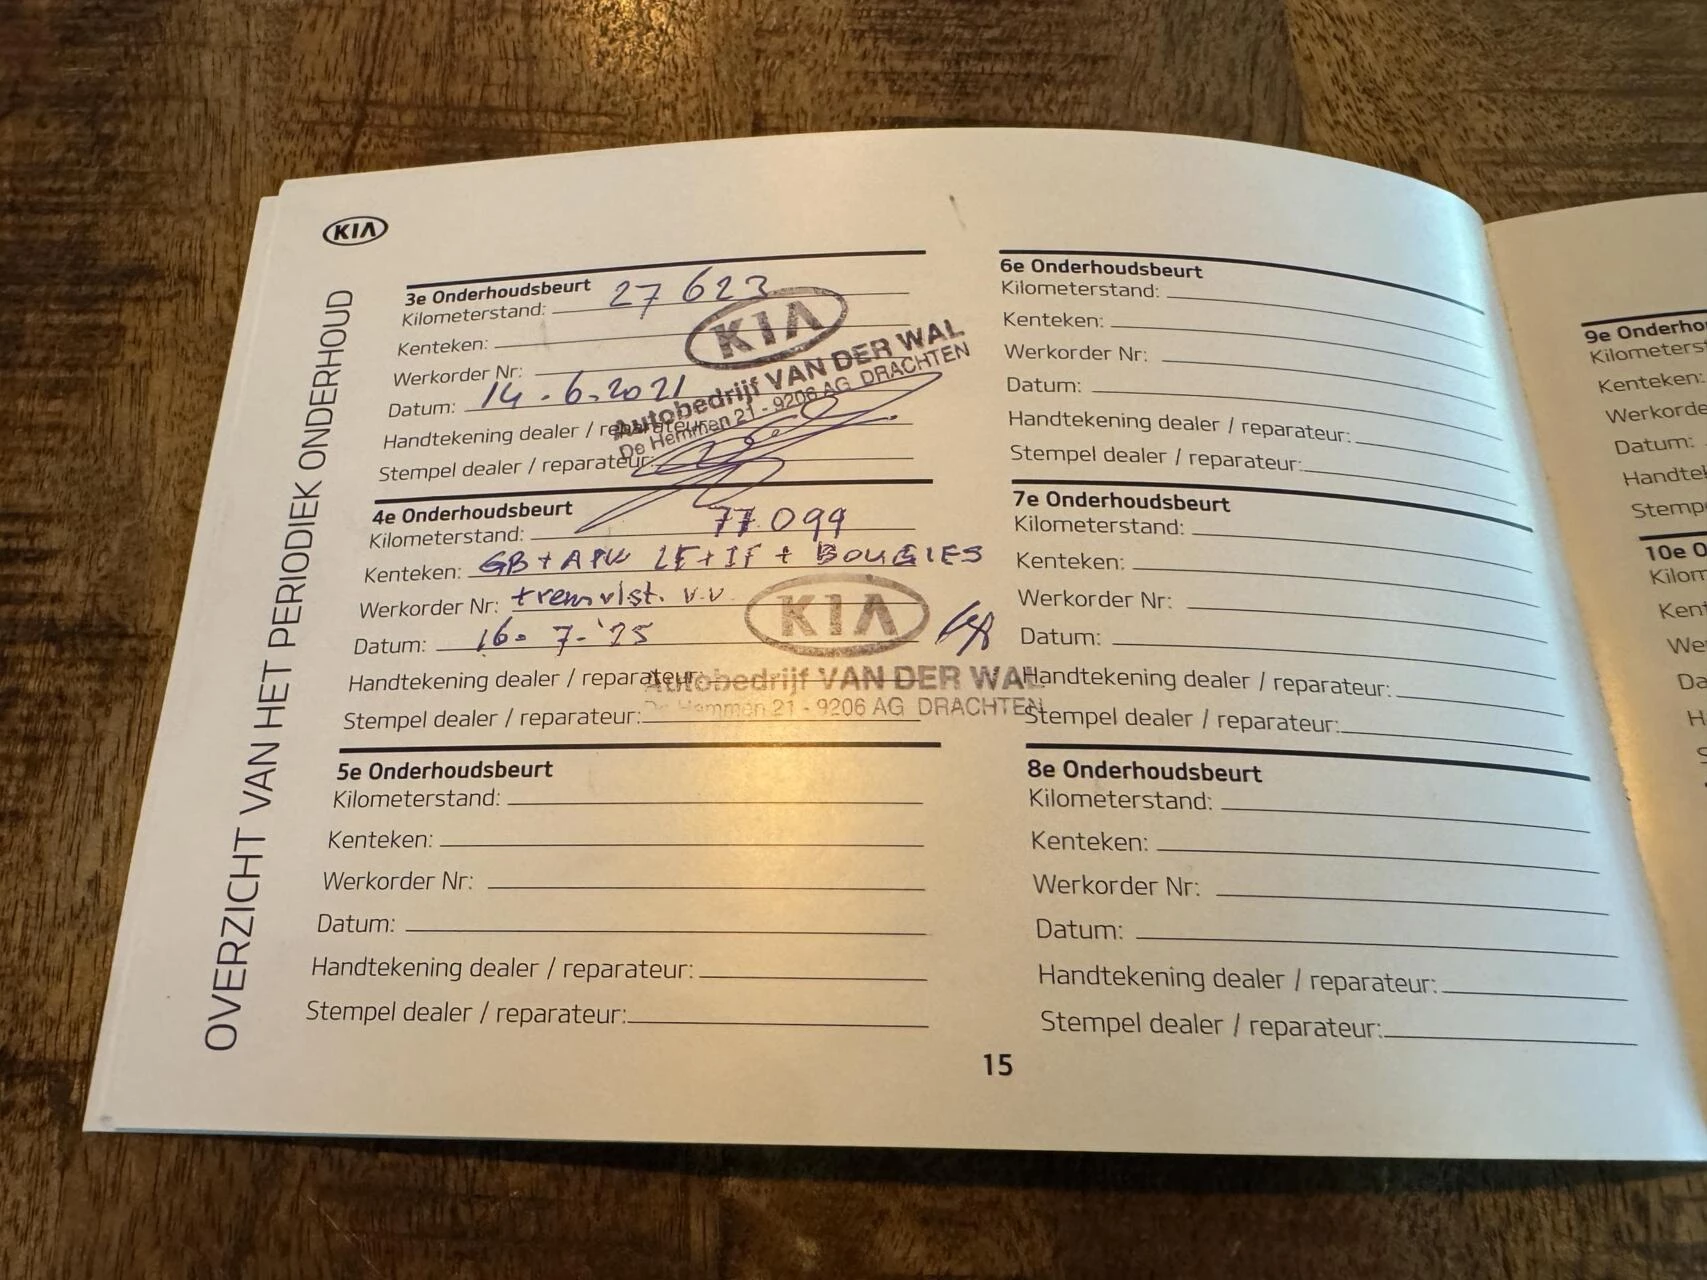 KIA
OVERZICHT VAN HET PERIODIEK ONDERHOUD
3e Onderhoudsbeurt
Kilometerstand: 27 623
Kenteken:
Werkorder Nr:
Datum: 14.6.2021
Handtekening dealer / reparateur:
Stempel dealer / reparateur:
KIA
Autobedrijf VAN DER WAL
De Hemmen 21 - 9206 AG DRACHTEN
4e Onderhoudsbeurt
Kilometerstand: 77.099
Kenteken: GB + APK LF + IF + BOUGIES
Werkorder Nr: remvlst. v.v.
Datum: 16-7-'25
Handtekening dealer / reparateur:
Stempel dealer / reparateur:
KIA
Autobedrijf VAN DER WAL
De Hemmen 21 - 9206 AG DRACHTEN
5e Onderhoudsbeurt
Kilometerstand:
Kenteken:
Werkorder Nr:
Datum:
Handtekening dealer / reparateur:
Stempel dealer / reparateur:
6e Onderhoudsbeurt
Kilometerstand:
Kenteken:
Werkorder Nr:
Datum:
Handtekening dealer / reparateur:
Stempel dealer / reparateur:
7e Onderhoudsbeurt
Kilometerstand:
Kenteken:
Werkorder Nr:
Datum:
Handtekening dealer / reparateur:
Stempel dealer / reparateur:
8e Onderhoudsbeurt
Kilometerstand:
Kenteken:
Werkorder Nr:
Datum:
Handtekening dealer / reparateur:
Stempel dealer / reparateur:
15
9e Onderho
Kilometers
Kenteken:
Werkorde
Datum:
Handte
Stemp
10e O
Kilom
Ken
We
Da
H
S